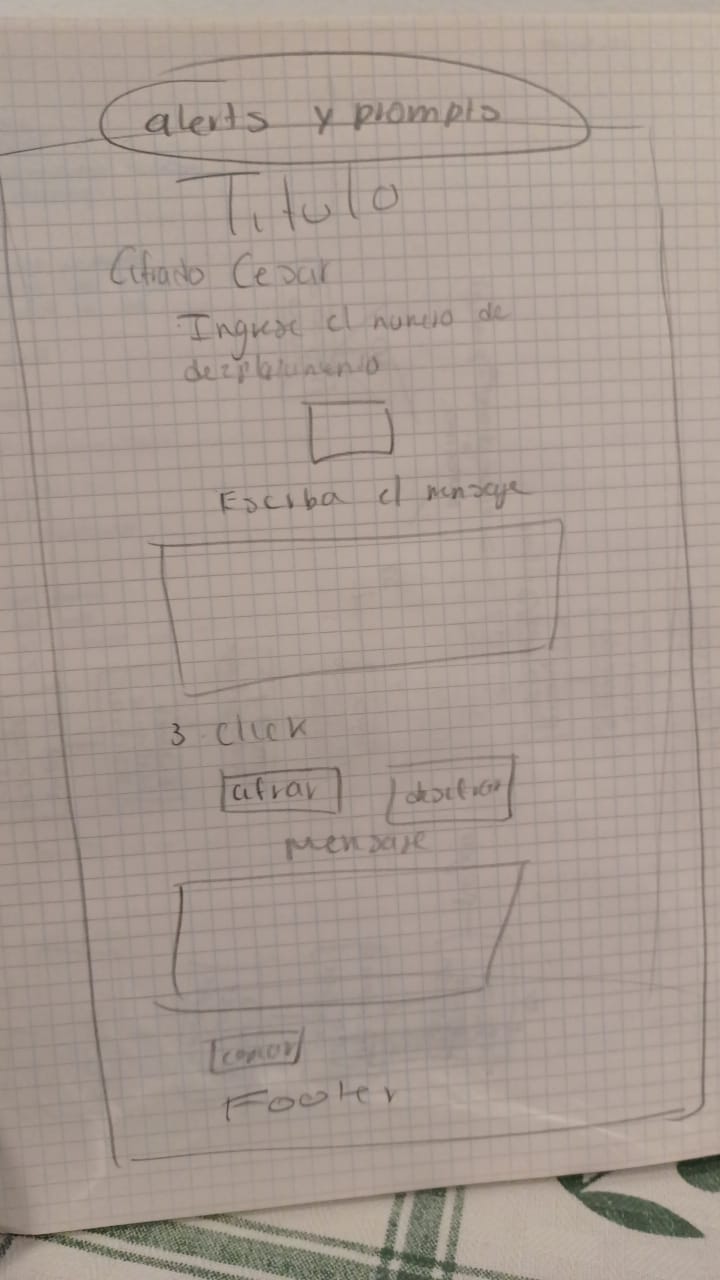 alerts y prompts
Titulo
Cifrado Cesar
Ingrese el numero de
Escriba el mensaje
3 click
cifrar descifrar
mensaje
Footer